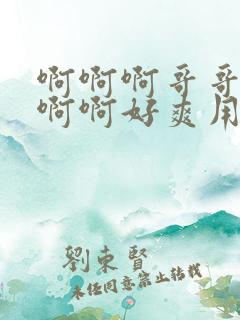 啊啊啊哥哥
啊啊好爽用
劉東賢
未经同意禁止转载